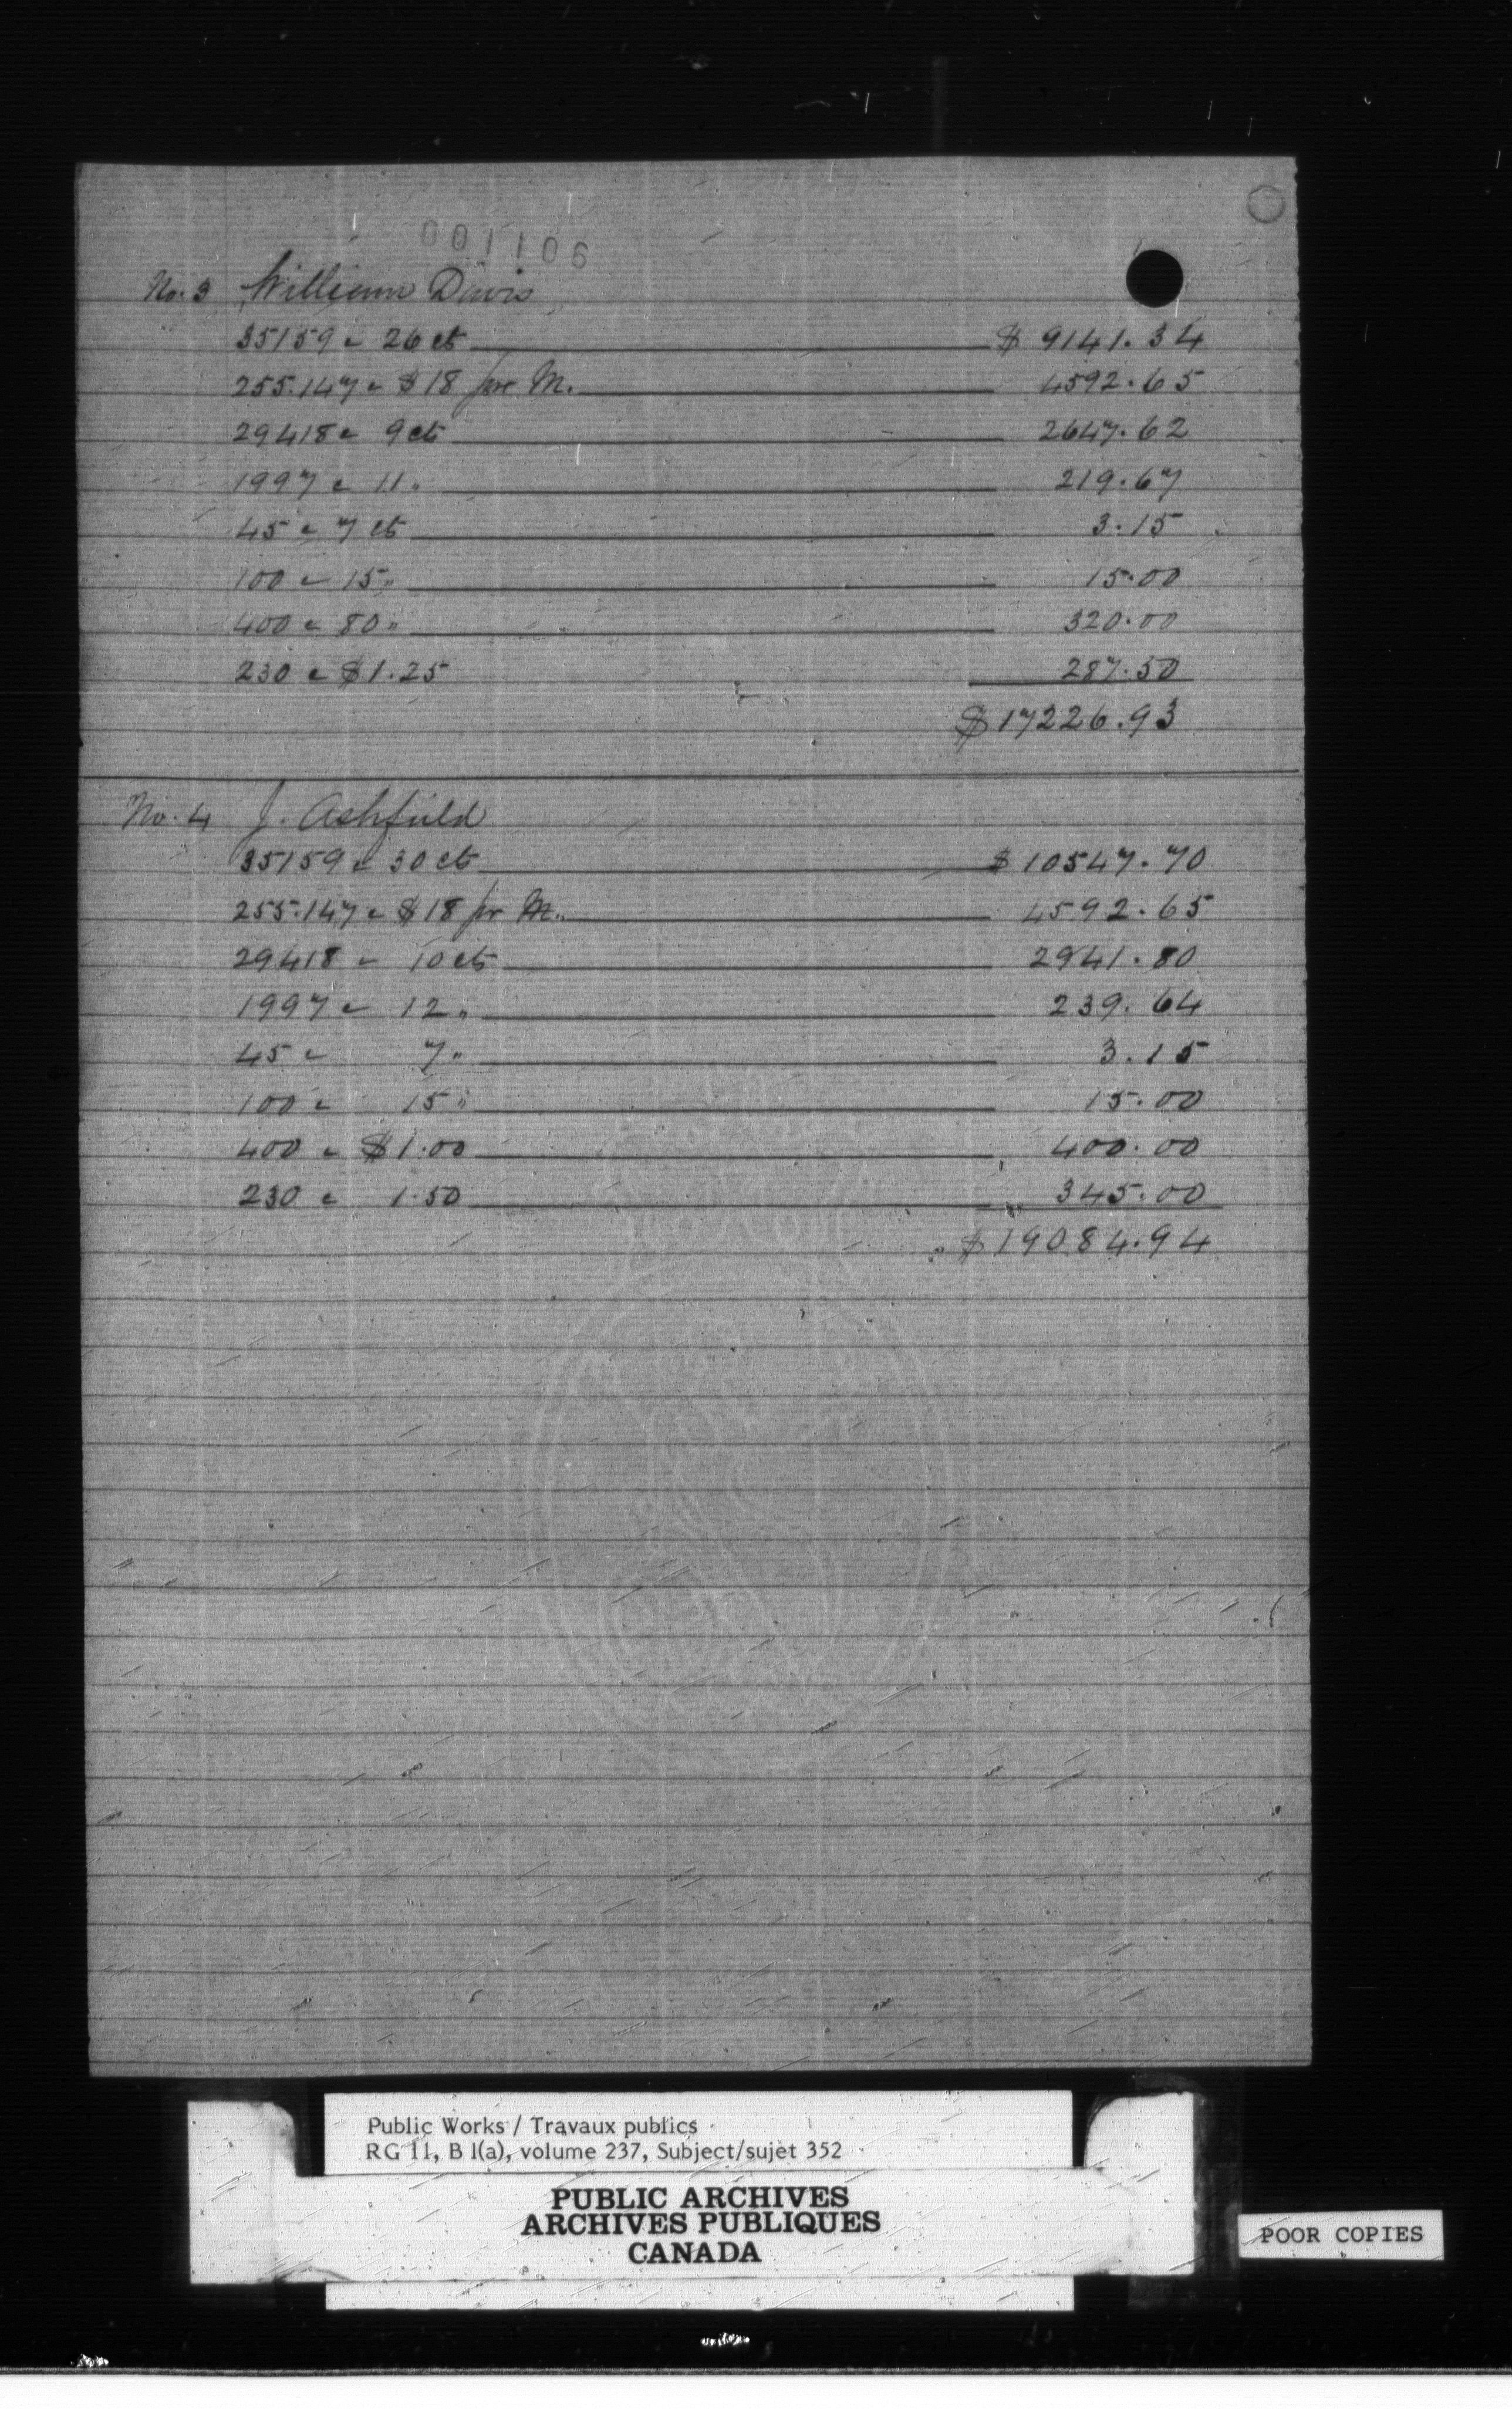 001106
No. 3 William Davis
35159 @ 26 cts $ 9141.34
255.147 @ $18 per M. 4592.65
29418 @ 9 cts 2647.62
1997 @ 11 " 219.67
45 @ 7 cts 3.15
100 @ 15 " 15.00
400 @ 80 " 320.00
230 @ $1.25 287.50
$17226.93
No. 4 J. Ashfield
35159 @ 30 cts $ 10547.70
255.147 @ $18 per M. 4592.65
29418 @ 10 cts 2941.80
1997 @ 12 " 239.64
45 @ 7 " 3.15
100 @ 15 " 15.00
400 @ $1.00 400.00
230 @ 1.50 345.00
$19084.94
Public Works / Travaux publics
RG 11, B 1(a), volume 237, Subject/sujet 352
PUBLIC ARCHIVES
ARCHIVES PUBLIQUES
CANADA
POOR COPIES